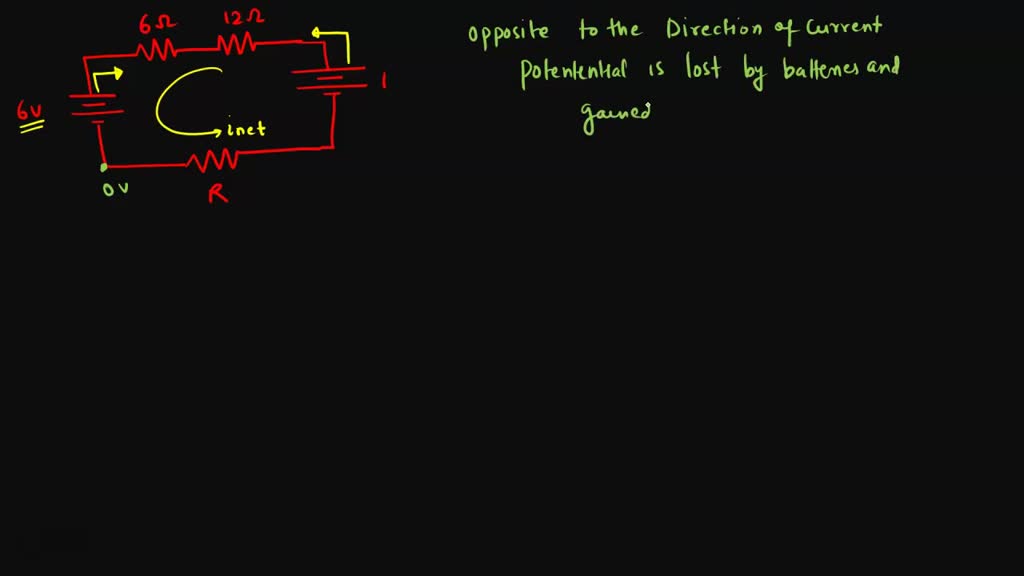 6Ω 12Ω
6V
1
inet
0V
R
opposite to the Direction of Current
Potentential is lost by batteries and
gained